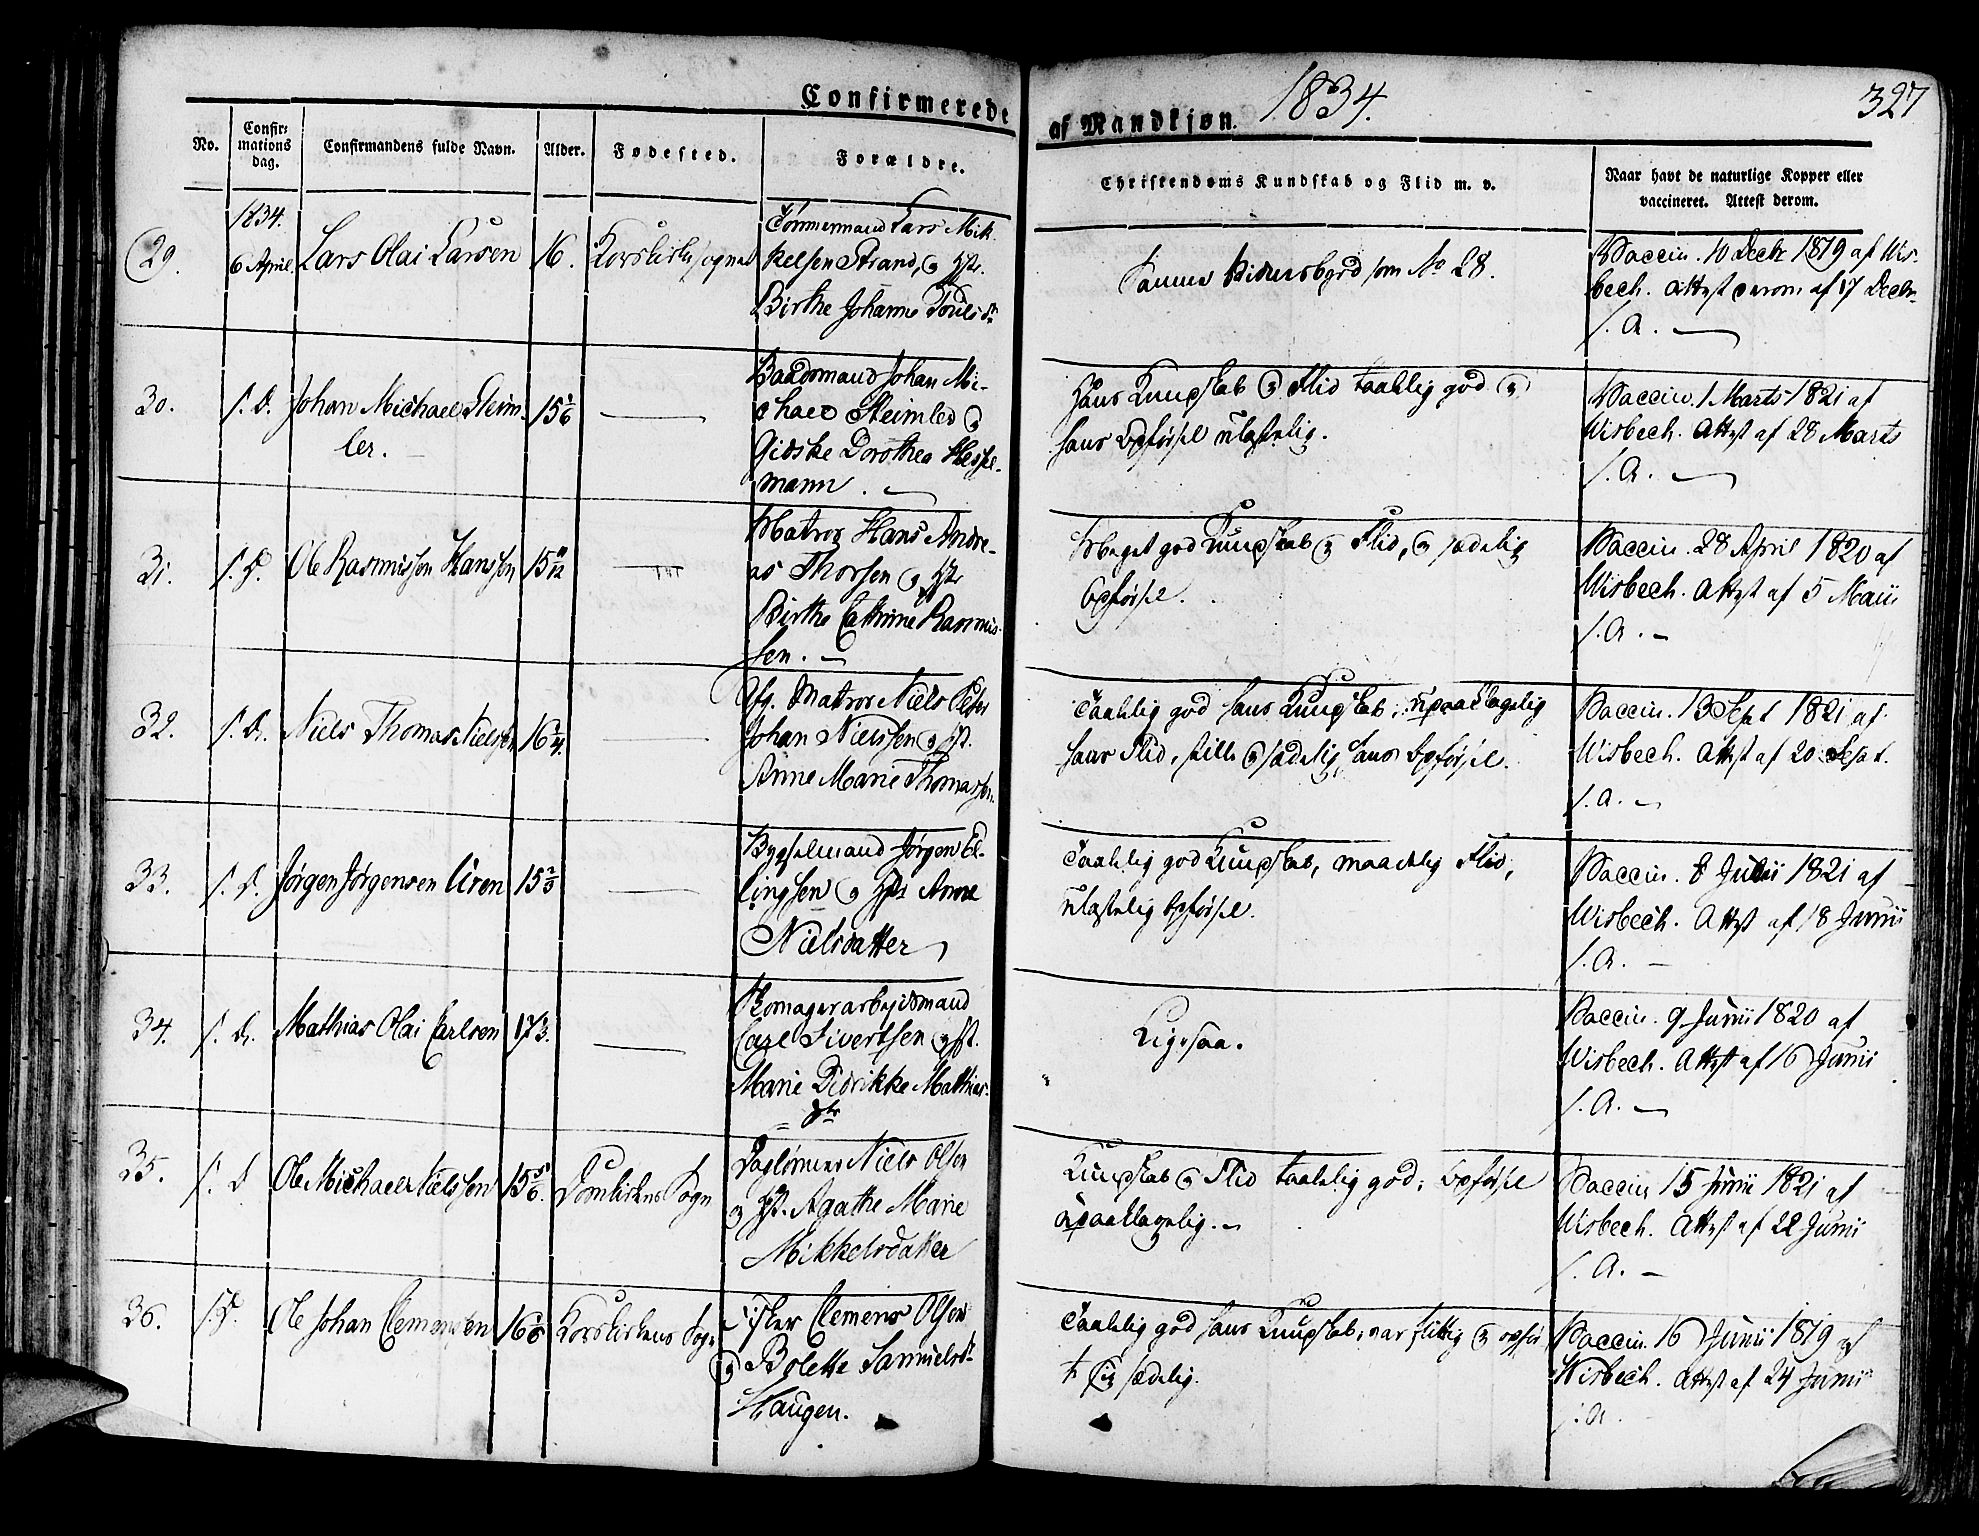 Confirmerede af Mandkjøn. 1834. 327
No. Confirmations dag. Confirmandens fulde Navn. Alder. Fødested. Forældre. Christendoms Kundskab og Flid m. v. Naar havt de naturlige Kopper eller vaccineret. Attest derom.
1834.
29. 6 April. Lars Olai Larsen 16. Korskirkesognet
Tømmermand Lars Mik-
kelsen Strand, og Hstr.
Birthe Johanne Pouls dr
Samme Vidnesbyrd som No 28.
Vaccin. 10 Decbr 1819 af Wis-
bech. Attest derom af 17 Decbr
s. A.
30. s. D. Johan Michael Steim-
ler. 15 1/6
Baadsmand Johan Mi-
chael Steimler og
Gidske Dorothea Hessel-
mann.
Hans Kundskab og Flid taalelig god og
hans Opførsel ulastelig.
Vaccin. 1 Marts 1821 af
Wisbech. Attest af 28 Marts
s. A.
31. s. D. Ole Rasmussen Hanssen 15 11/12
Matros Hans Andre-
as Thorsen og Hstr
Birthe Cathrine Rasmus-
sen.
Meget god Kundskab og Flid, og sædelig
Opførsel.
Vaccin. 28 April 1820 af
Wisbech. Attest af 5 Maii
s. A.
32. s. D. Niels Thomas Nielsen 16 1/4
Afg. Matros Niels Peter
Johan Nielssen og Hst.
Anne Marie Thomassen
Taalelig god hans Kundskab, upaaklagelig
hans Flid, stille og sædelig hans Opførsel.
Vaccin. 13 Sept 1821 af
Wisbech. Attest af 20 Sept.
s. A.
33. s. D. Jørgen Jørgensen Uren 15 2/3
Bygselmand Jørgen El-
lingsen og Hstr Anne
Nielsdatter
Taalelig god Kundskab, maadelig Flid,
ulastelig Opførsel.
Vaccin. 8 Junii 1821 af
Wisbech. Attest af 18 Junii
s. A.
34. s. D. Mathias Olai Carlsen 17 1/3
Skomagerarbejdsmand
Carl Sivertsen og Hst.
Marie Didrikke Mathias-
dtr
Ligesaa.
Vaccin. 9 Junii 1820 af
Wisbech. Attest af 16 Junii
s. A.
35. s. D Ole Michael Nielssen 15 5/6. Domkirkens Sogn
Dagleiner Niels Olsen
og Hst. Agathe Marie
Mikkelsdatter
Kundskab og Flid taalelig god, Opførsel
upaaklagelig.
Vaccin 15 Junii 1821 af
Wisbech. Attest af 22 Junii
s. A.
36. s. D. Ole Johan Clemensen 16 1/6 Korskirkens Sogn
Fisker Clemens Olsen
og Bolette Samuelsdr
Haugen.
Taalelig god hans Kundskab, var flittig og opfør-
te sig sædelig.
Vaccin. 16 Junii 1819 af
Wisbech. Attest af 24 Junii
s. A.